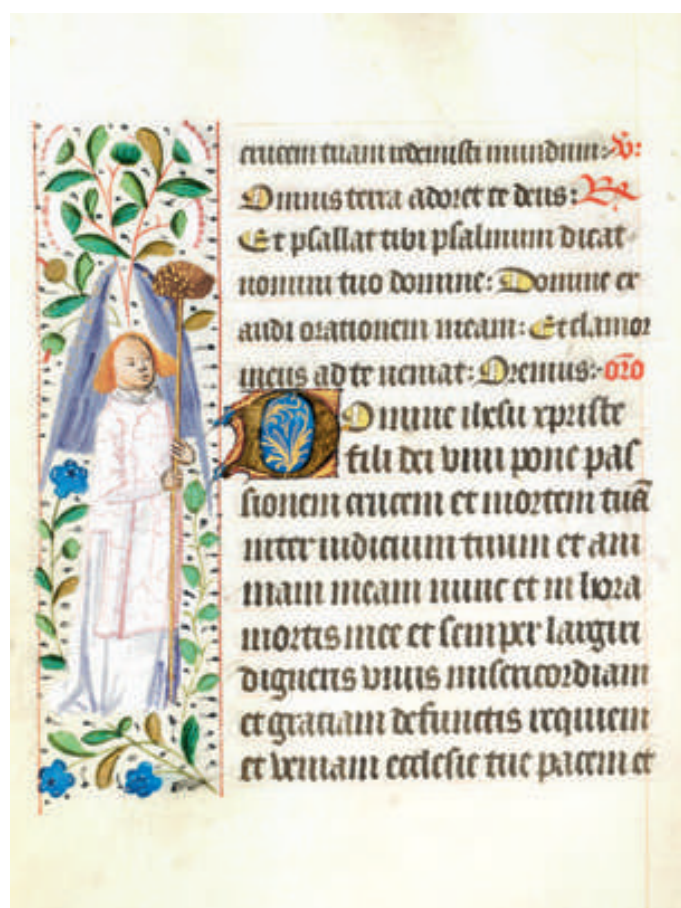 crucem tuam redemisti mundum: V̊:
Omnis terra adoret te deus: R
Et psallat tibi psalmum dicat
nomini tuo domine: Domine ex
audi orationem meam: Et clamor
meus ad te ueniat: Oremus: oro̅
Domine ihesu xpriste
fili dei viui pone pas
sionem crucem et mortem tua̅
inter iudicium tuum et ani
mam meam nunc et in hora
mortis mee et semper largiri
digneris viuis misericordiam
et gratiam defunctis requiem
et veniam ecclesie tue pacem et